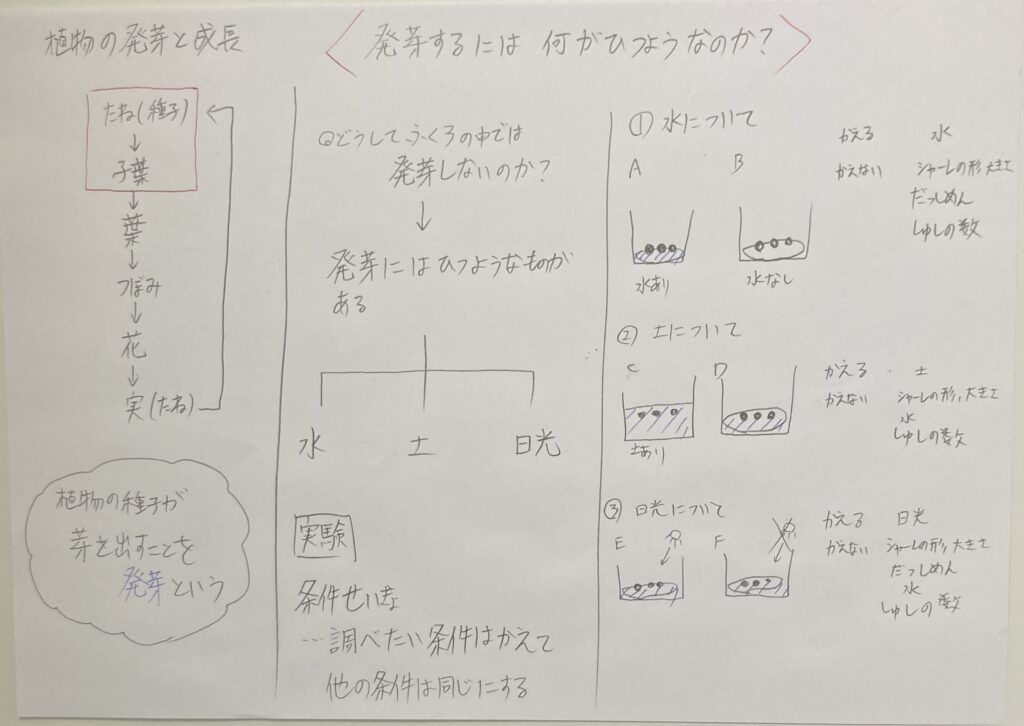 植物の発芽と成長
発芽するには 何がひつようなのか?
たね(種子)
↓
子葉
↓
葉
↓
つぼみ
↓
花
↓
実(たね)
植物の種子が
芽を出すことを
発芽という
Qどうして、ふくろの中では
発芽しないのか?
↓
発芽にはひつようなものが
ある
水 土 日光
実験
条件せいぎょ
…調べたい条件はかえて
他の条件は同じにする
① 水について
かえる 水
かえない シャーレの形 大きさ
だっしめん
しゅしの数
A B
水あり 水なし
② 土について
かえる 土
かえない シャーレの形、大きさ
水
しゅしの数
C D
土あり
③ 日光について
かえる 日光
かえない シャーレの形、大きさ
だっしめん
水
しゅしの数
E F